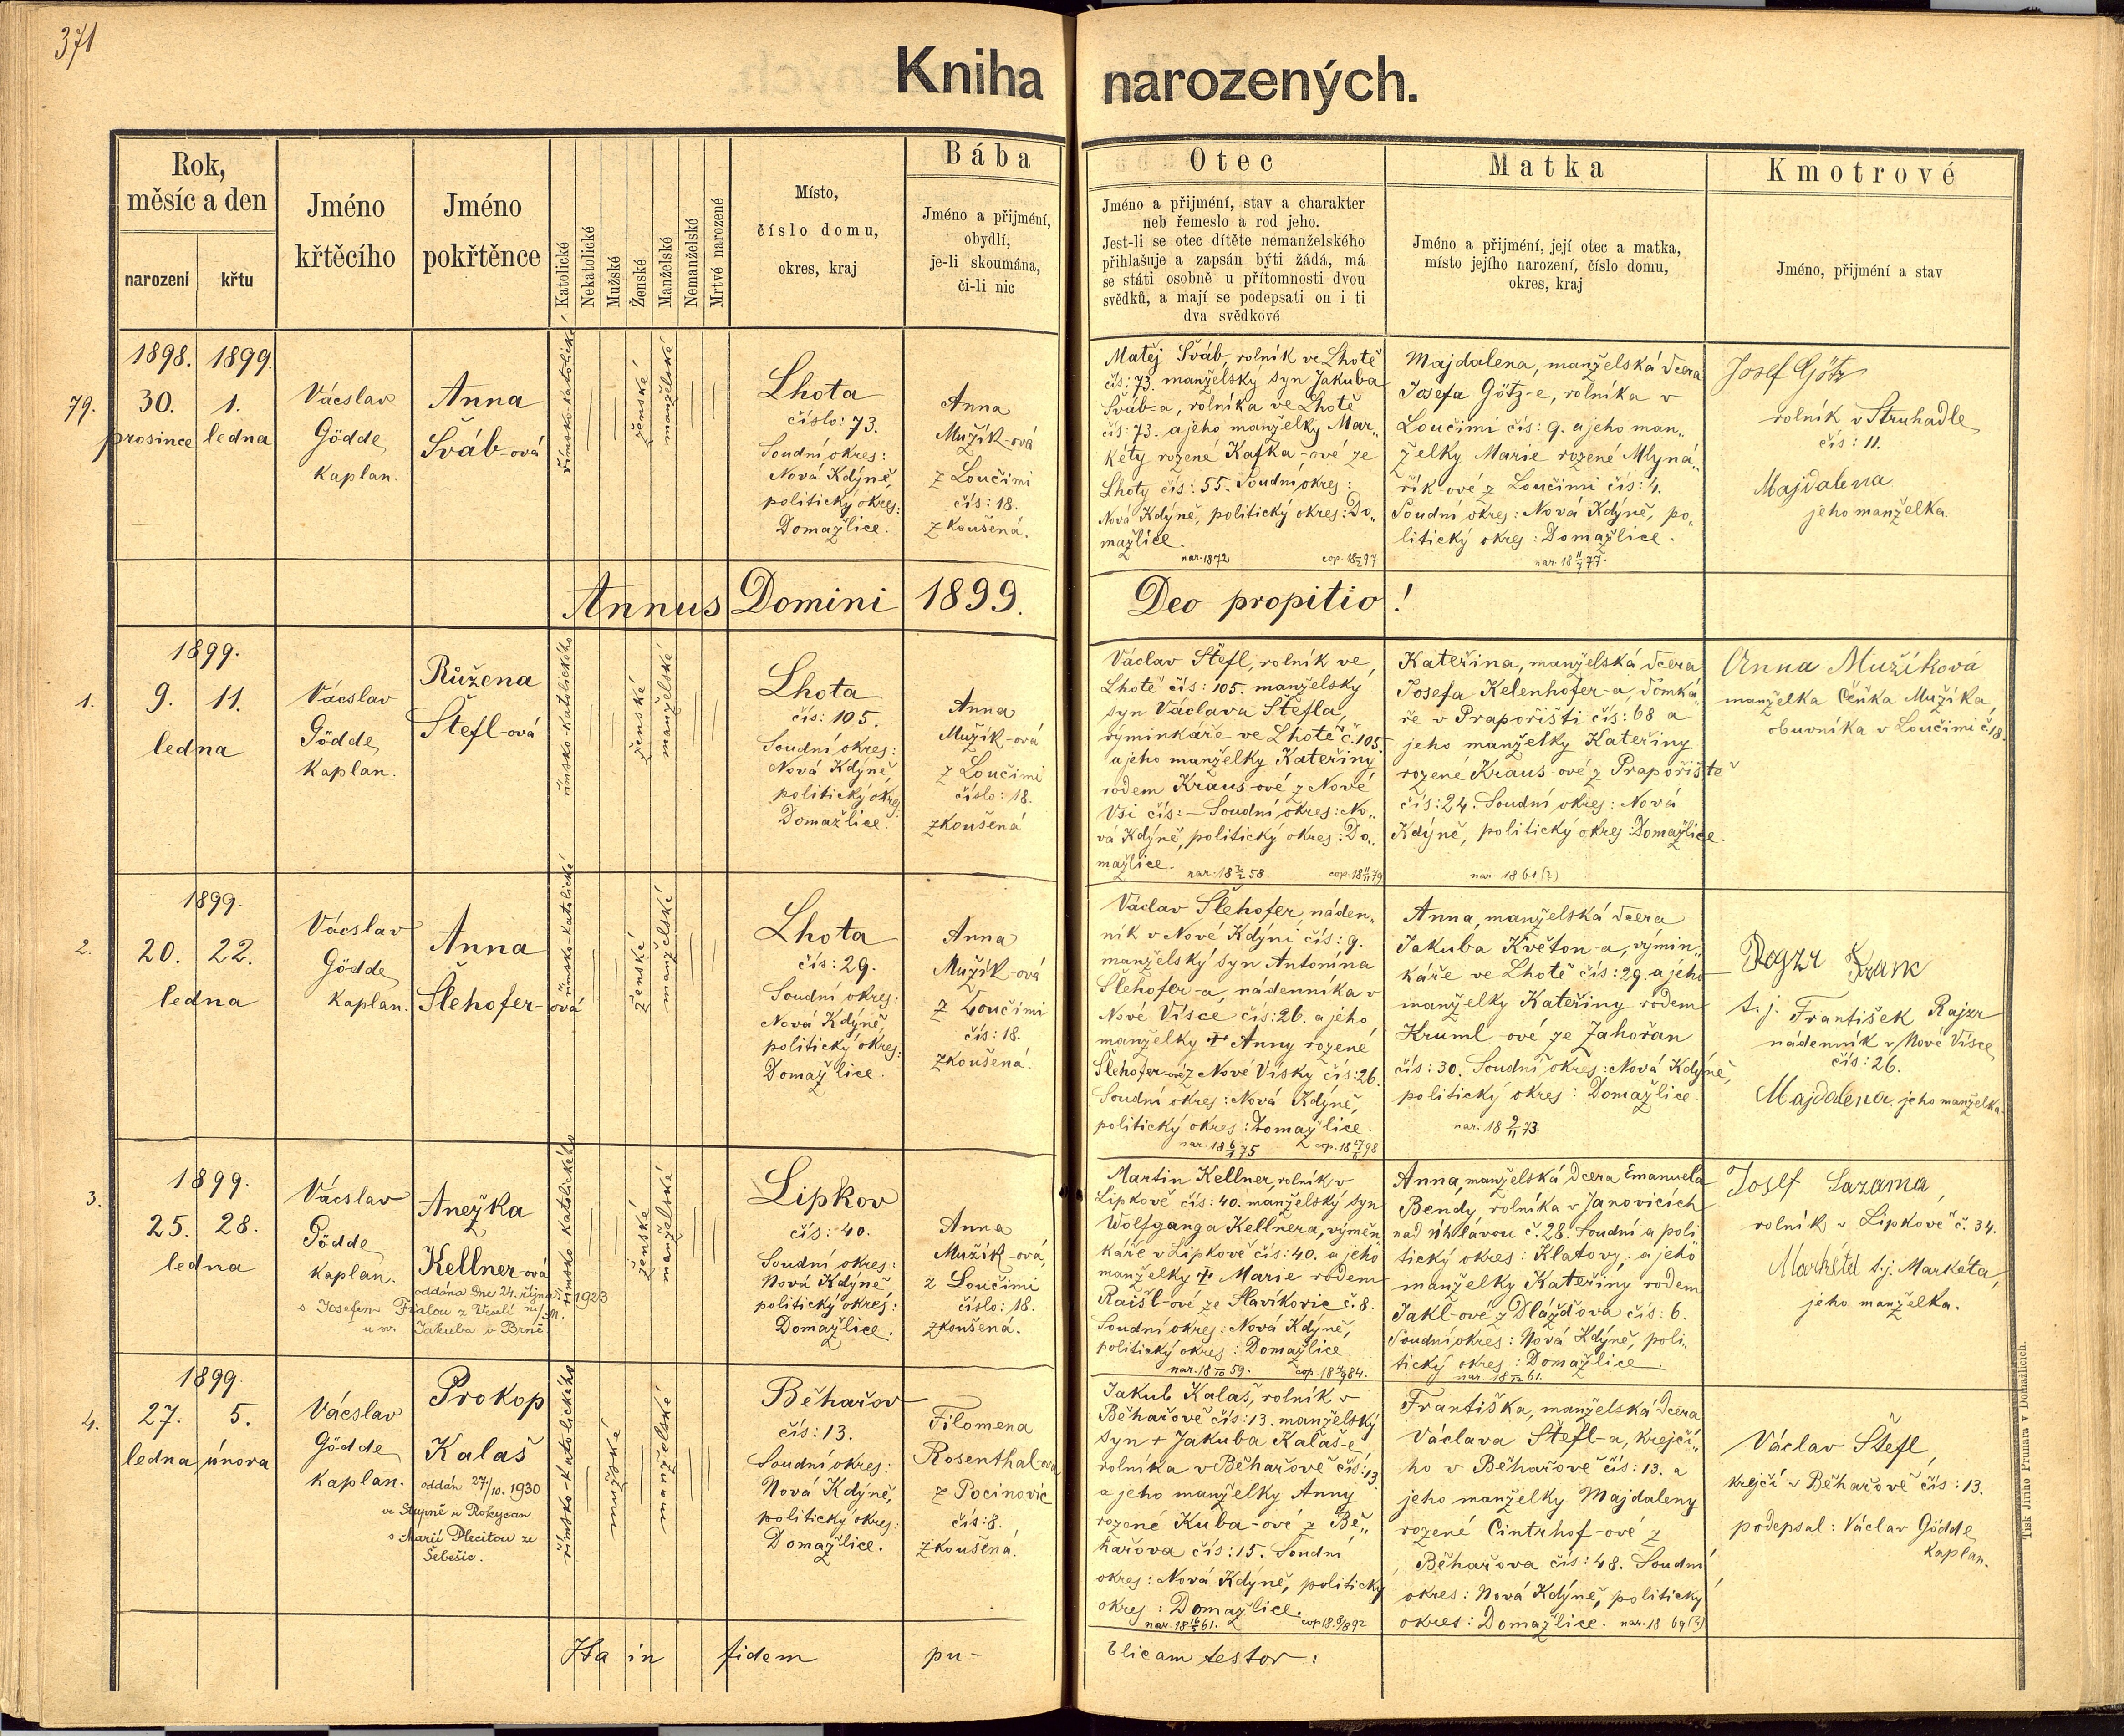 371
Kniha narozených.
Rok,
měsíc a den
narození
křtu
Jméno
křtěcího
Jméno
pokřtěnce
Katolické
Nekatolické
Mužské
Ženské
Manželské
Nemanželské
Mrtvé narozené
Místo,
číslo domu,
okres, kraj
Bába
Jméno a přijmení,
obydlí,
je-li skoumána,
či-li nic
Otec
Jméno a přijmení, stav a charakter
neb řemeslo a rod jeho.
Jest-li se otec dítěte nemanželského
přihlašuje a zapsán býti žádá, má
se státi osobně u přítomnosti dvou
svědků, a mají se podepsati on i ti
dva svědkové
Matka
Jméno a přijmení, její otec a matka,
místo jejího narození, číslo domu,
okres, kraj
Kmotrové
Jméno, přijmení a stav
79.
1898. 1899.
30. 1.
prosince ledna
Vácslav
Gödde
Kaplan.
Anna
Šváb-ová
římsko-katolické
ženské
manželské
Lhota
číslo: 73.
Soudní okres:
Nová Kdýně,
politický okres:
Domažlice.
Anna
Mužík-ová
z Loučimi
čís: 18.
zkoušená.
Matěj Šváb, rolník ve Lhotě
čís: 73. manželský syn Jakuba
Šváb-a, rolníka ve Lhotě
čís: 73. a jeho manželky Mar„
kéty rozené Kafka-ové ze
Lhoty čís: 55. Soudní okres:
Nová Kdýně, politický okres: Do„
mažlice.
nar. 1872
Majdalena, manželská dcera
Josefa Götz-e, rolníka v
Loučimi čís: 9. a jeho man„
želky Marie rozené Mlyná„
řík-ové z Loučimi čís: 4.
Soudní okres: Nová Kdýně, po„
litický okres: Domažlice.
Josef Götz
rolník v Struhadle
čís: 11.
Majdalena
jeho manželka.
Annus Domini 1899. Deo propitio!
1.
1899.
9. 11.
ledna
Vácslav
Gödde
Kaplan.
Růžena
Štefl-ová
římsko-katolického
ženské
manželské
Lhota
čís: 105.
Soudní okres:
Nová Kdýně,
politický okres
Domažlice.
Anna
Mužík-ová
z Loučimi
číslo: 18.
zkoušená
Václav Štefl, rolník ve
Lhotě čís: 105. manželský
syn Václava Štefla,
výminkáře ve Lhotě č. 105.
a jeho manželky Kateřiny
rodem Kraus-ové z Nové
Vsi čís: — Soudní okres: No„
vá Kdýně, politický okres: Do„
mažlice.
Kateřina, manželská dcera
Josefa Kelenhofer-a, domká„
ře v Prapořišti čís: 68 a
jeho manželky Kateřiny
rozené Kraus-ové z Prapořiště
čís: 24. Soudní okres: Nová
Kdýně, politický okres Domažlice.
nar. 1861(?)
Anna Mužíková
manželka Čeňka Mužíka,
obuvníka v Loučimi č. 18.
2.
1899.
20. 22.
ledna
Vácslav
Gödde
Kaplan.
Anna
Šlehofer-ová
římsko-katolické
ženské
manželské
Lhota
čís: 29.
Soudní okres:
Nová Kdýně,
politický okres:
Domažlice.
Anna
Mužík-ová
z Loučimi
čís: 18.
zkoušená.
Václav Šlehofer, náden„
ník v Nové Kdýni čís: 9.
manželský syn Antonína
Šlehofer-a, nádenníka v
Nové Vísce čís: 26. a jeho
manželky † Anny rozené
Šlehofer-ové z Nové Vísky čís: 26.
Soudní okres: Nová Kdýně,
politický okres: Domažlice.
Anna, manželská dcera
Jakuba Květon-a, výmin„
káře ve Lhotě čís: 29. a jeho
manželky Kateřiny rodem
Kruml-ové ze Zahořan
čís: 30. Soudní okres: Nová Kdýně,
politický okres: Domažlice.
t. j. František Rajzr
nádenník v Nové Vísce
čís: 26.
Majdalena, jeho manželka.
3.
1899.
25. 28.
ledna
Vácslav
Gödde
Kaplan.
Anežka
Kellner-ová
oddána dne 24. října 1923
s Josefem Fialou z Veselí n/M.
u sv. Jakuba v Brně
římsko katolického
ženské
manželské
Lipkov
čís: 40.
Soudní okres:
Nová Kdýně
politický okres:
Domažlice.
Anna
Mužík-ová,
z Loučimi
číslo: 18.
zkoušená.
Martin Kellner, rolník v
Lipkově čís: 40. manželský syn
Wolfganga Kellnera, výměn„
káře v Lipkově čís: 40. a jeho
manželky † Marie rodem
Raišl-ové ze Slavíkovic č. 8.
Soudní okres: Nová Kdýně,
politický okres: Domažlice.
Anna, manželská dcera Emanuela
Bendy, rolníka v Janovicích
nad Úhlavou č. 28. Soudní a poli
tický okres: Klatovy. a jeho
manželky Kateřiny rodem
Jakl-ové z Dlážďova čís: 6.
Soudní okres: Nová Kdýně, poli„
tický okres: Domažlice.
Josef Sazama,
rolník v Lipkově č. 34.
Markétd t. j. Markéta,
jeho manželka.
4.
1899.
27. 5.
ledna února
Vácslav
Gödde
Kaplan.
Prokop
Kalaš
oddán 27/10. 1930
ve Stupně u Rokycan
s Marií Plecitou ze
Šebešic.
římsko-katolického
mužské
manželské
Běhařov
čís: 13.
Soudní okres:
Nová Kdýně,
politický okres:
Domažlice.
Filomena
Rosenthal-ová
z Pocinovic
čís: 8.
zkoušená.
Jakub Kalaš, rolník v
Běhařově čís: 13. manželský
syn † Jakuba Kalaš-e,
rolníka v Běhařově čís: 13.
a jeho manželky Anny
rozené Kuba-ové z Bě„
hařova čís: 15. Soudní
okres: Nová Kdyně, politický
okres: Domažlice.
Františka, manželská dcera
Václava Štefl-a, krejčí„
ho v Běhařově čís: 13. a
jeho manželky Majdaleny
rozené Cintrhof-ové z
Běhařova čís: 48. Soudní
okres: Nová Kdýně, politický
okres: Domažlice. nar. 1869(?)
Václav Štefl,
krejčí v Běhařově čís: 13.
podepsal: Václav Gödde
Kaplan.
Ita in fidem pu-
blicam testor:
Tisk Jiřího Prunara v Domažlicích.